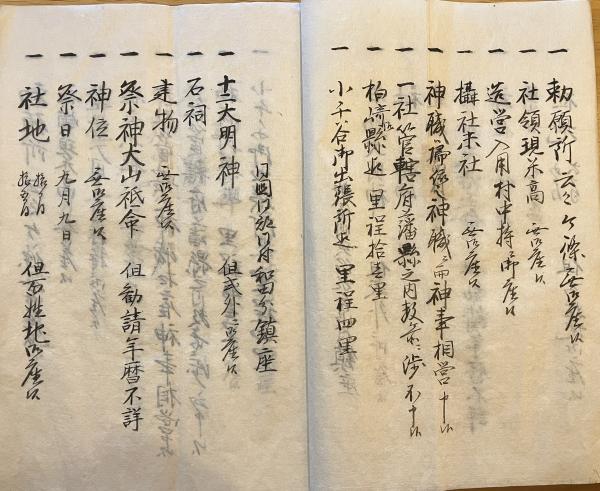 一 勅願所云々ケ條無御座候
一 社領現米高 無御座候
一 造営入用村中持ニ御座候
一 攝社末社 無御座候
一 神職 神職ニ而神事相営申候
一 一社管轄府藩縣之内数ケ所ニ渉不申候
一 柏崎縣迄 里程拾壱里
一 小千谷御出張所迄 里程四里
同国同郡同村 鎮座
一 十二大明神 但式外ニ御座候
一 石祠
一 建物 無御座候
一 祭神大山祇命 但勧請年暦不詳
一 神位 無御座候
一 祭日 九月九日
一 社地 但百姓地ニ御座候